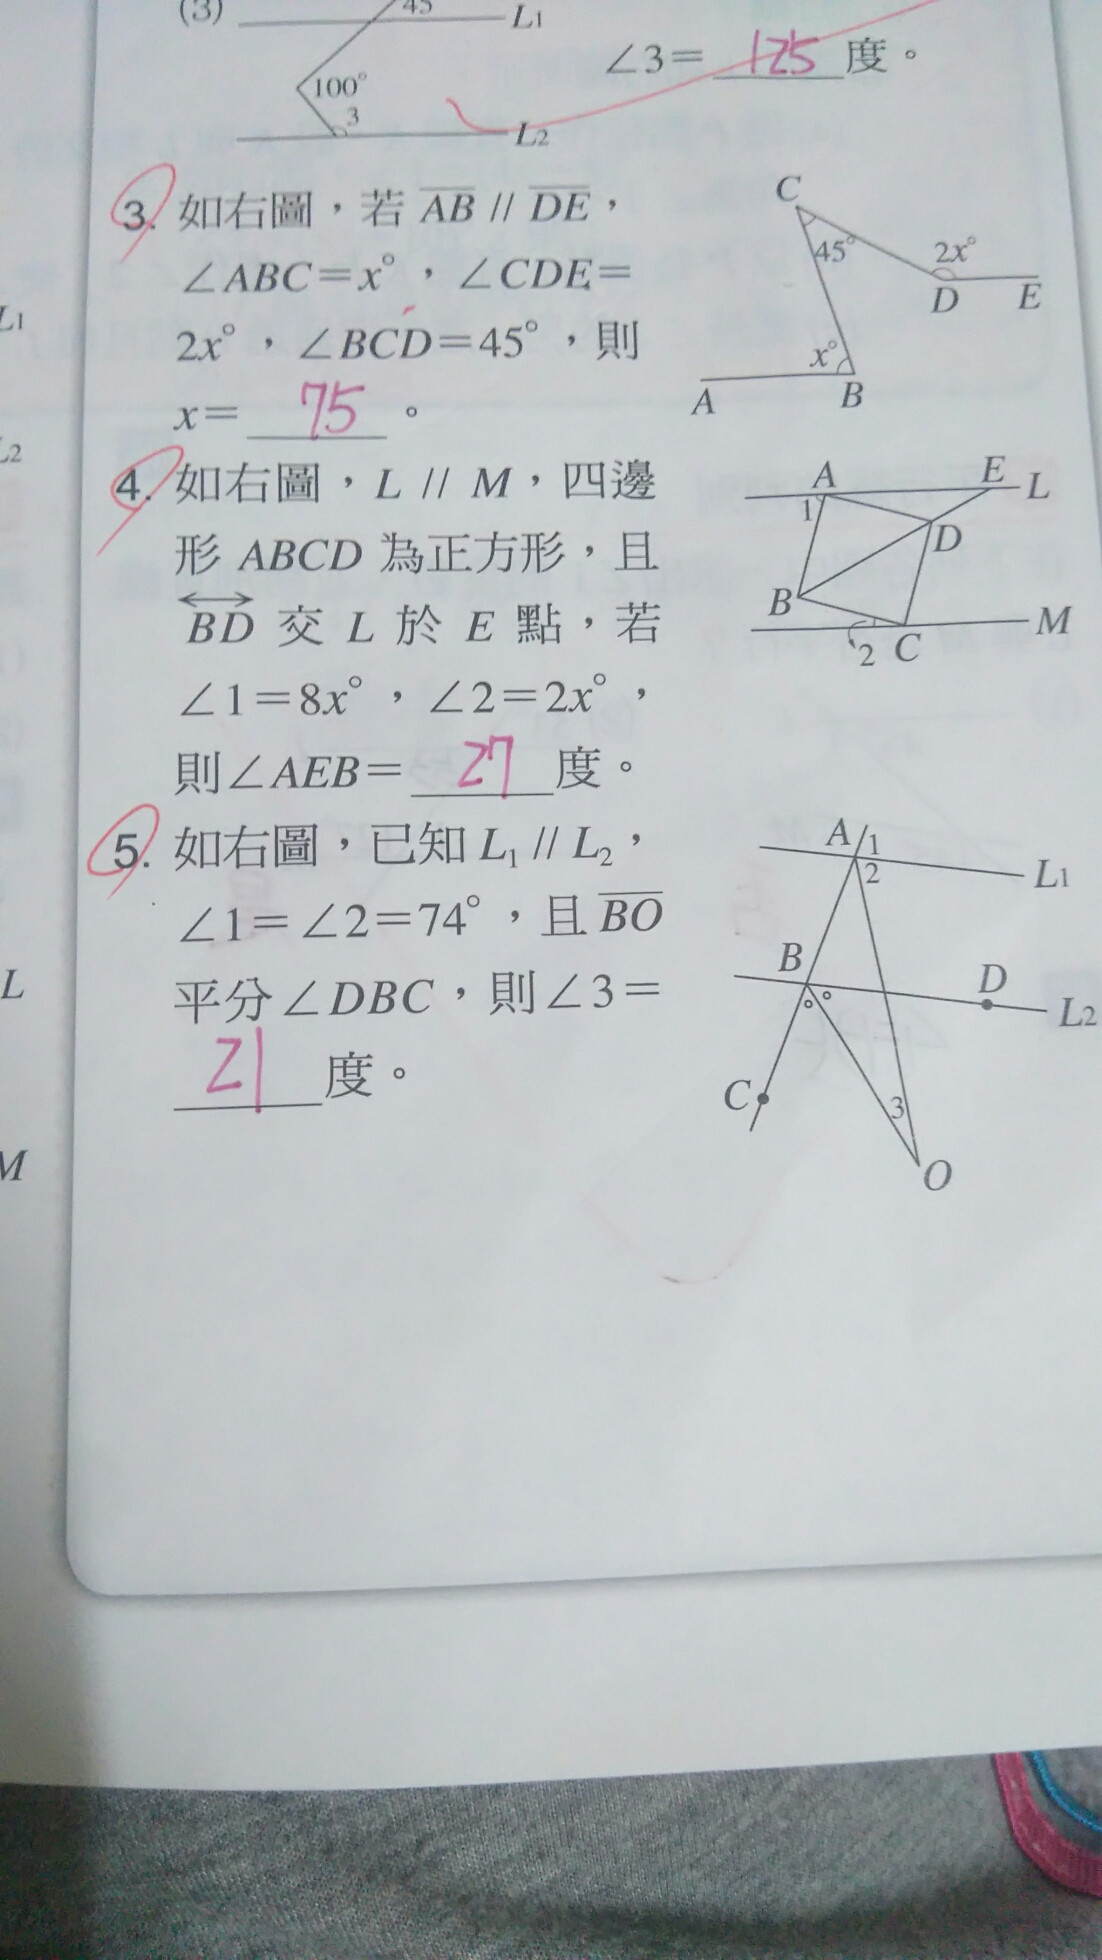 (3)
45
L1
∠3＝ 125 度。
100°
3
L2
3. 如右圖，若 AB // DE，
∠ABC＝x°，∠CDE＝
2x°，∠BCD＝45°，則
x＝ 75 。
C
45°
2x°
D
E
x°
A
B
4. 如右圖，L // M，四邊
形 ABCD 為正方形，且
BD 交 L 於 E 點，若
∠1＝8x°，∠2＝2x°，
則∠AEB＝ 27 度。
A
E
L
1
D
B
M
2
C
5. 如右圖，已知 L1 // L2，
∠1＝∠2＝74°，且 BO
平分∠DBC，則∠3＝
21 度。
A
1
2
L1
B
D
L2
C
3
O
L1
L2
L
M